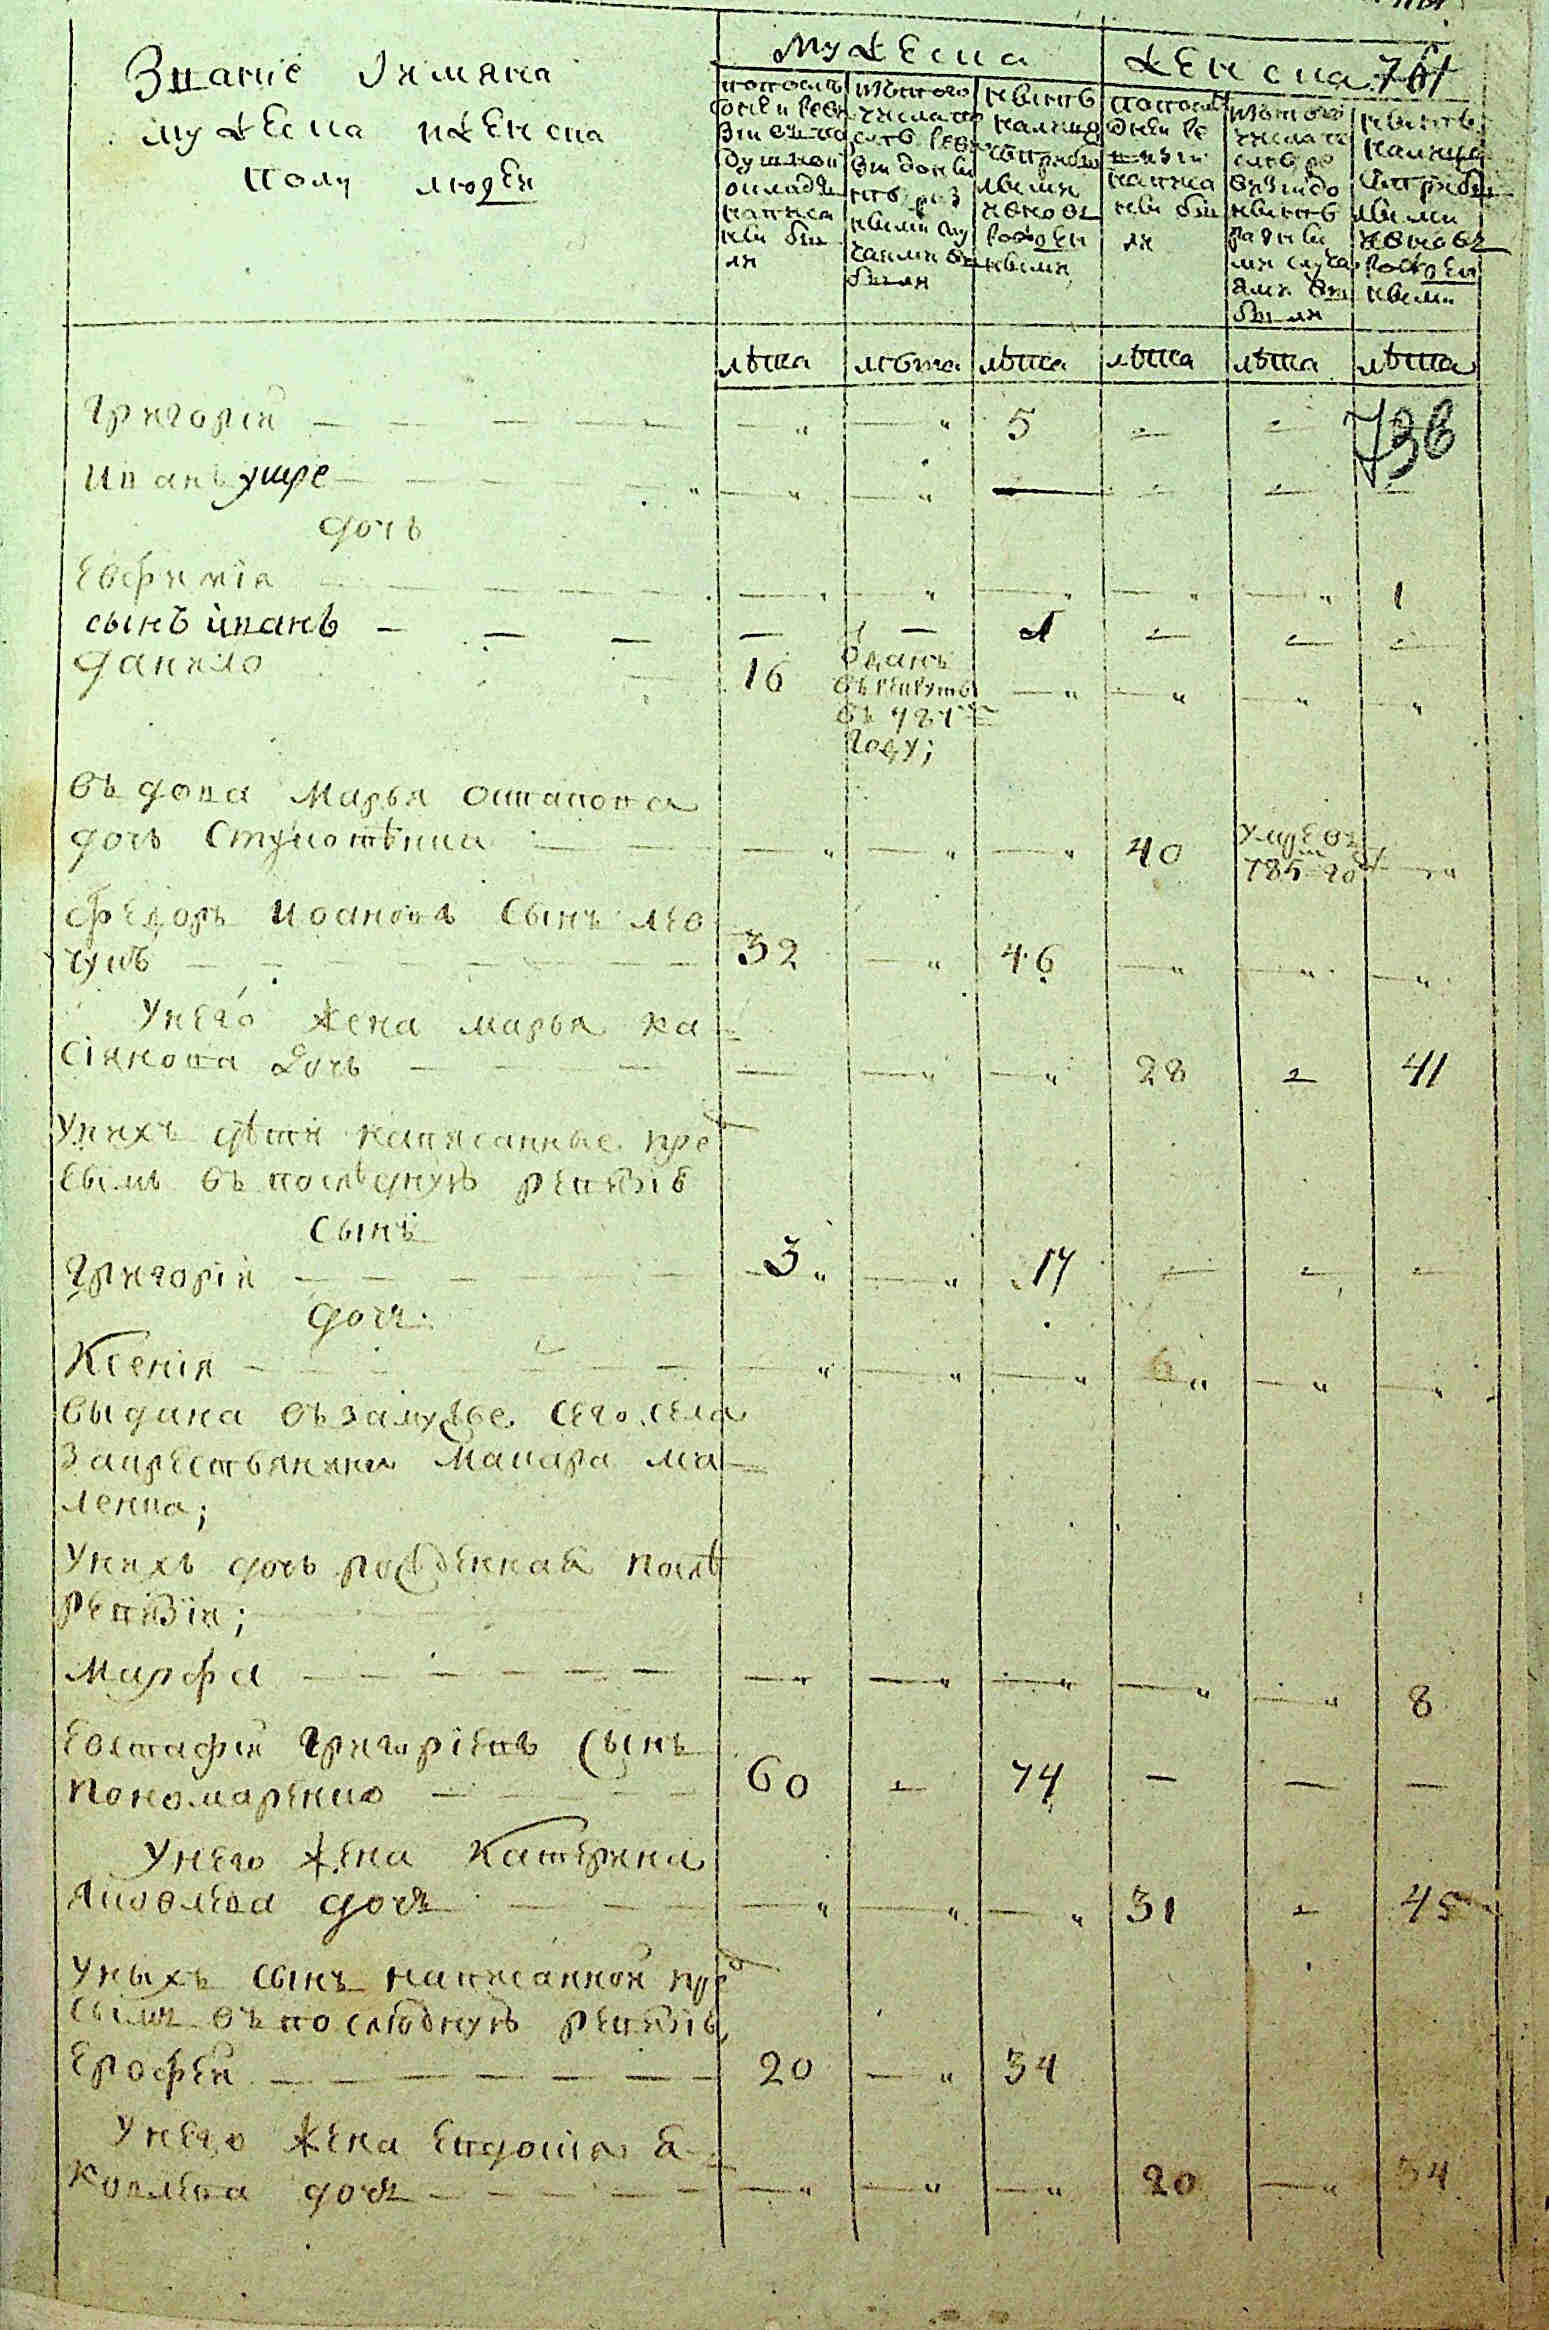 Званіе Имяна
мужеска иженска
полу людей
Мужеска
женска 761
попослѣ
дней реви
зіи въ по
душной
окладъ
написа
ны бы
ли
изтого
числа по
слѣ реви
зіи до ны
нѣ раз
ными слу
чаями вы
были
нынѣ
налицо
сприбы
лыми
изновъ
рожден
ными
попослѣ
дней ре
визіи
написа
ны бы
ли
изтого
числа по
слѣ ре
визіи до
нынѣ
разны
ми случа
ями вы
были
нынѣ
налицо
сприбы
лыми
изновъ
рожден
ными
лѣта лѣта лѣта лѣта лѣта лѣта
Григорій 5 736
Иванъ умре
дочь
Евфимія 1
сынъ иванъ 1
данило 16 отданъ
въ рекруты
въ 787м
году;
въдова Марья Остапова
дочь Ступотѣнка 40 умре въ
785 году
Федоръ Иоановъ Сынъ лео
чукъ 32 46
Унего жена марья ка
сіянова дочь 28 41
Унихъ дѣти написанные пре
съимъ въ послѣдную ревизію
Сынъ
Григорій 3 17
дочь
Ксенія 6
выдана въ замужве сего села
закрестьянина Макара ма
ленка;
Унихъ дочь рожденная послѣ
ревизіи;
Марфа 8
Евстафій Григоріевъ Сынъ
пономаренко 60 74
Унего жена Катерина
Яковлева дочь 31 45
Уныхъ сынъ написанной пре
съимъ въ послѣдную ревизію,
Ерофей 20 34
Унего жена Евдокія Я
ковлева дочь 20 34